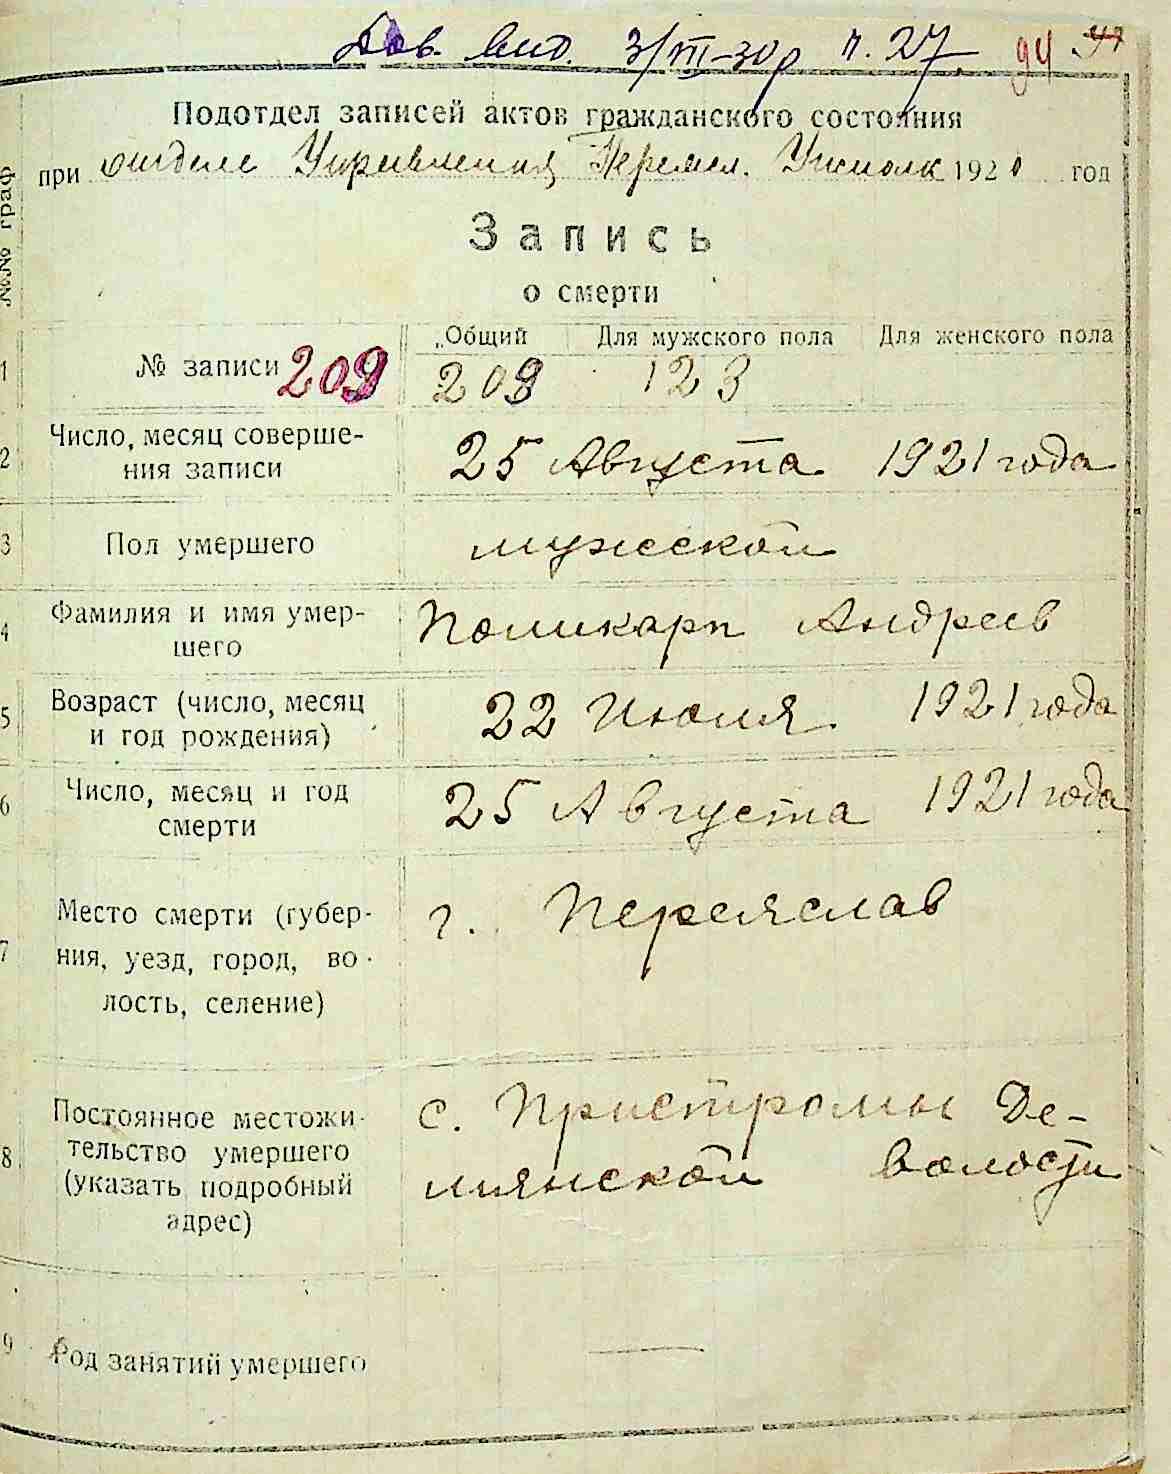 Дов. вид. 3/III-30р п. 27 94
Подотдел записей актов гражданского состояния
при отделе Управления Переясл. Уисполк 1921 год
№№ граф
Запись
о смерти
Общий Для мужского пола Для женского пола
1 № записи 209 209 123
2 Число, месяц соверше- 25 Августа 1921 года
ния записи
3 Пол умершего мужской
4 Фамилия и имя умер- Поликарп Андреев
шего
5 Возраст (число, месяц 22 Июля 1921 года
и год рождения)
6 Число, месяц и год 25 Августа 1921 года
смерти
7 Место смерти (губер- г. Переяслав
ния, уезд, город, во-
лость, селение)
8 Постоянное местожи- с. Пристромы Де-
тельство умершего мянской волости
(указать подробный
адрес)
9 Род занятий умершего —